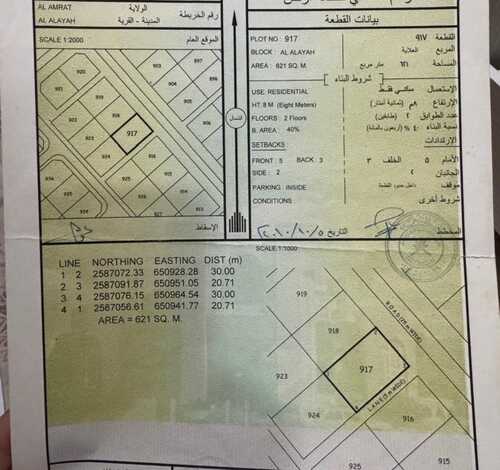 AL AMRAT الولاية رقم الخريطة
AL ALAYAH المدينة - القرية
SCALE 1:2000 الموقع العام
بيانات القطعة
PLOT NO : 917 القطعة ٩١٧
BLOCK : AL ALAYAH المربع العلاية
AREA : 621 SQ. M. المساحة ٦٢١ متر مربع
شروط البناء
USE: RESIDENTIAL الإستعمال سكني فقط
HT: 8 M (Eight Meters) الإرتفاع ٨م (ثمانية أمتار)
FLOORS : 2 Floors عدد الطوابق ٢ (طابقين)
B. AREA 40% نسبة البناء ٤٠٪ (أربعون بالمائة)
SETBACKS الإرتدادات
FRONT : 5 BACK 3 الأمام ٥ الخلف ٣
SIDE : 2 الجانبان ٢
PARKING : INSIDE موقف داخل حدود القطعة
CONDITIONS شروط أخرى
المخطط
التاريخ ٢٠١٠/١٠/٥
الإسقاط
الشمال
920
919
918
917
923
916
924
SCALE:1:1000
LINE NORTHING EASTING DIST (m)
1 2 2587072.33 650928.28 30.00
2 3 2587091.87 650951.05 20.71
3 4 2587076.15 650964.54 30.00
4 1 2587056.61 650941.77 20.71
AREA = 621 SQ. M.
919
918
917
923
924
916
925
915